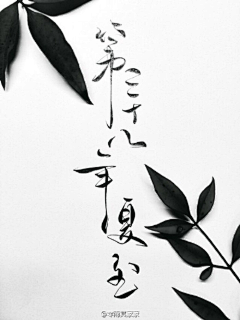 第三十八年夏至